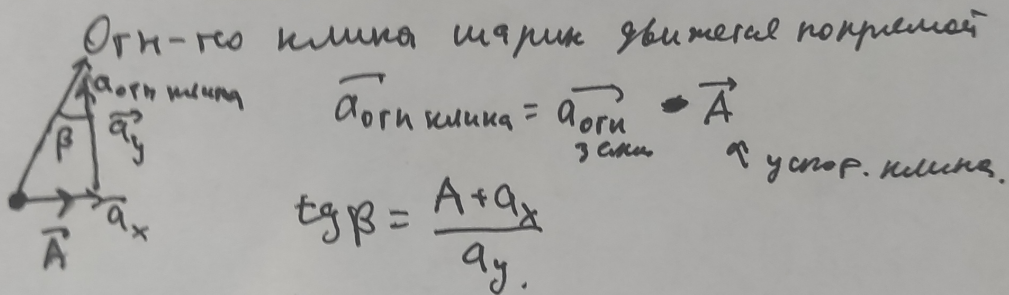 Отн-но клина шарик движется по прямой
a отн клина
a отн клина = a отн земли - A
β
a y
↑ ускор. клина.
tg β = A + a x / a y.
a x
A